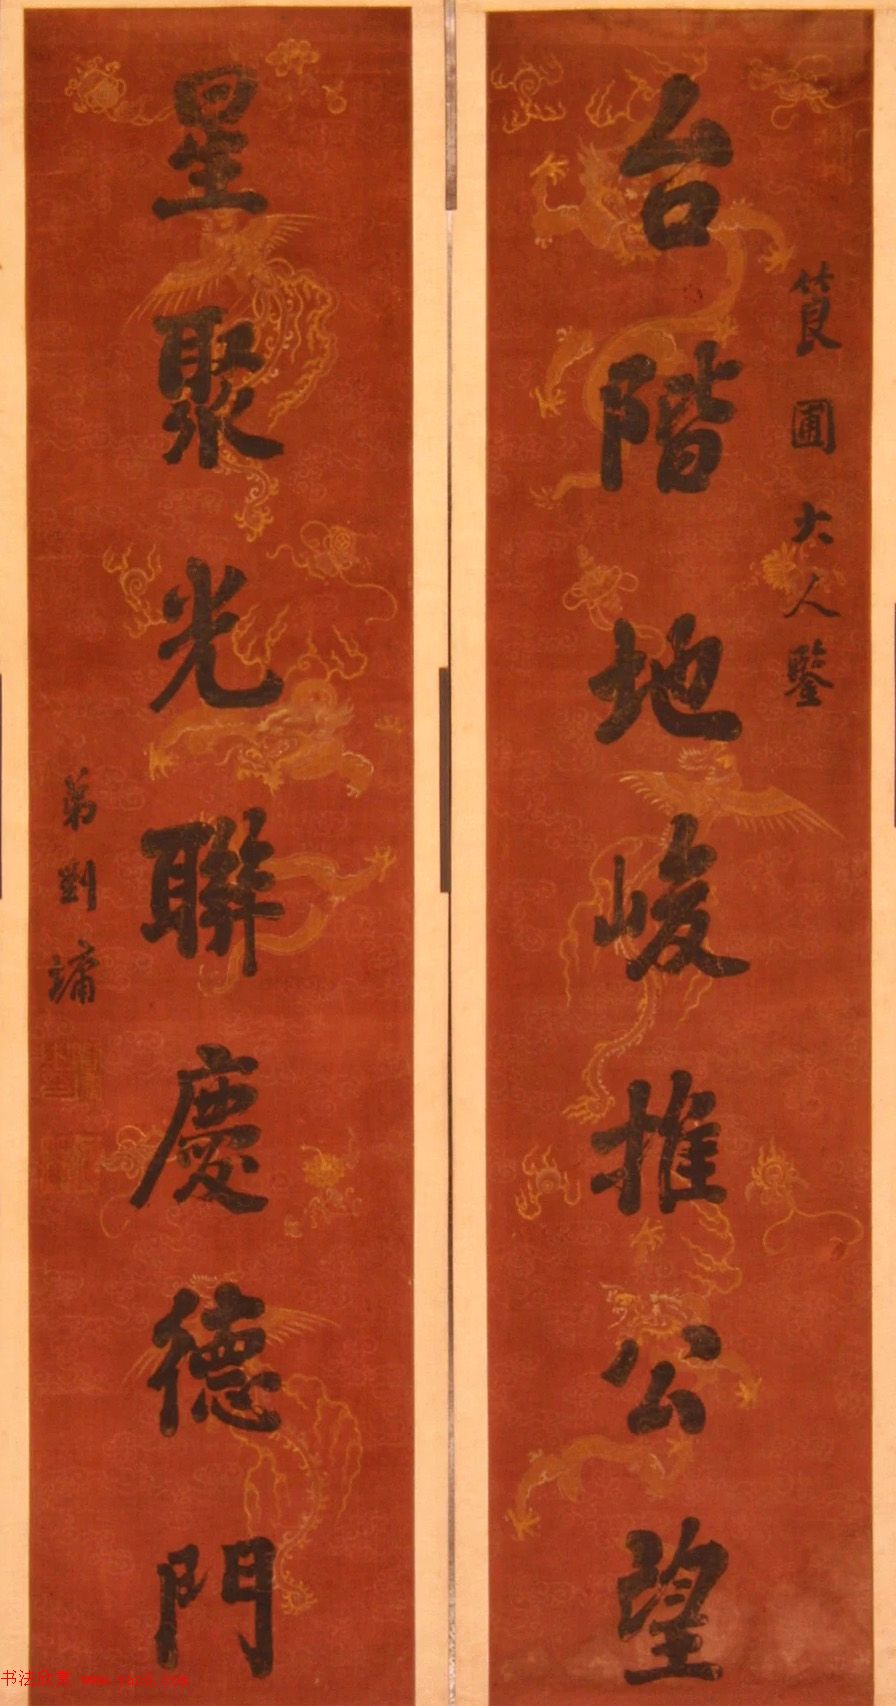 筤圃大人鑒
台階地峻推公望
星聚光聯慶德門
弟劉墉
书法欣赏 www.yac8.com